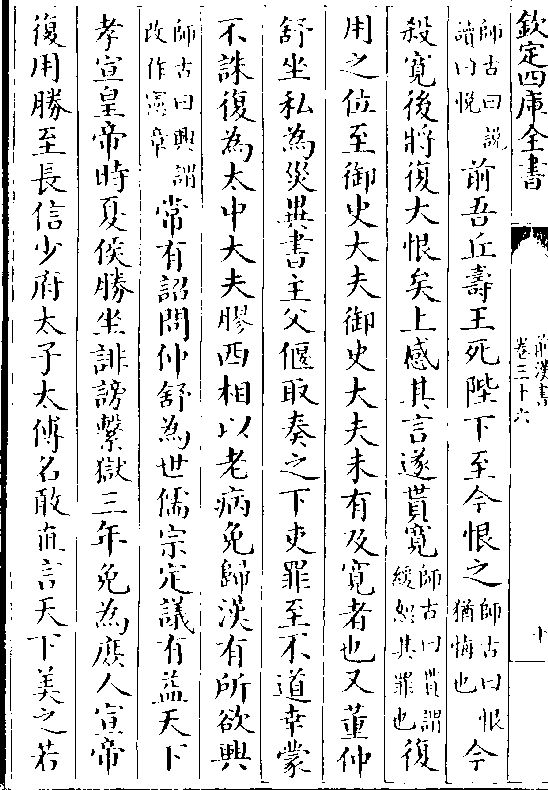 欽定四庫全書
前漢書
卷三十六
師古曰說
讀曰悅
前吾丘壽王死陛下至今恨之
師古曰恨
猶悔也
今
殺寬後將復大恨矣上感其言遂貰寬
師古曰貰謂
緩恕其罪也
復
用之位至御史大夫御史大夫未有及寬者也又董仲
舒坐私為災異書主父偃取奏之下吏罪至不道幸蒙
不誅復為太中大夫膠西相以老病免歸漢有所欲興
師古曰興謂
改作憲章
常有詔問仲舒為世儒宗定議有益天下
孝宣皇帝時夏侯勝坐誹謗繫獄三年免為庶人宣帝
復用勝至長信少府太子太傅名敢直言天下美之若